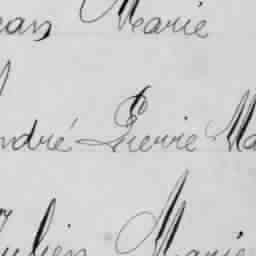 ean Marie
ndré Pierre Ma
ulien Marie